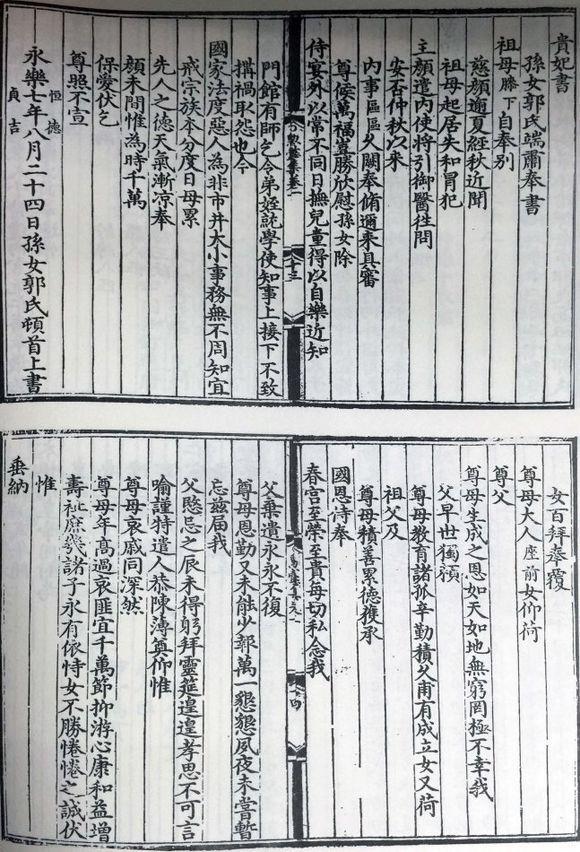 貴妃書
孫女郭氏端肅奉書
祖母膝下自奉別
慈顔逾夏經秋近聞
祖母起居失和冒犯
主顔遣內使將引御醫徃問
安否仲秋以來
內事區區久闕奉脩邇來具審
尊侯萬福豈勝欣慰孫女除
侍宴外以常不同日撫兒童得以自樂近知
門館有師乞令弟姪就學使知事上接下不致
搆禍取怨也今
國家法度惡人為非市井大小事務無不周知宜
戒宗族本分度日毋累
先人之德天氣漸凉奉
顔未間惟為時千萬
保愛伏乞
尊照不宣
恒德
貞吉
永樂七年八月二十四日孫女郭氏頓首上書
女百拜奉覆
尊母大人座前女仰荷
尊父
尊母生成之恩如天如地無窮罔極不幸我
父早世獨頼
尊母教育諸孤辛勤積久甫有成立女又荷
祖父及
尊母積善累德獲承
國恩侍奉
春宫至榮至貴毋切私念我
父棄遺永永不復
尊母恩勤又未能少報萬一懇懇夙夜未嘗暫
忘兹届我
父愍忌之辰未得躬拜靈筵遑遑孝思不可言
喻謹特遣人恭陳薄奠仰惟
尊母哀戚同深然
尊母年高過哀匪宜千萬節抑游心康和益增
壽祉庶幾諸子永有依恃女不勝惓惓之誠伏
惟
垂納